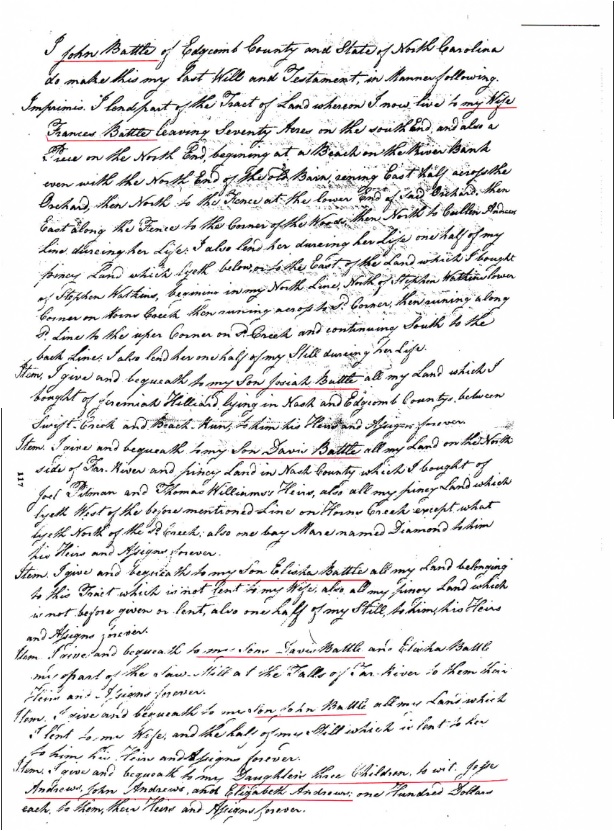 I John Battle of Edgcomb County and State of North Carolina
do make this my last Will and Testament, in Manner following.
Imprimis. I lend part of the Tract of Land whereon I now live to my Wife
Frances Battle leaving Seventy Acres on the south End, and also a
Piece on the North End, begining at a Beach on the River Bank
even with the North End of the old Barn, runing East half across the
Orchard, then North to the Fence at the lower End of said Orchard, then
East along the Fence to the Corner of the Woods, then North to Cullen Andrews
Line dureing her Life. I also lend her dureing her Life one half of my
piney Land which lyeth below, or to the East of the Land which I bought
of Stephen Watkins, begining in my North Line, North of Stephen Watkins lower
Corner on Horns Creek then runing across to Sd. Corner, then runing along
Sd. Line to the uper Corner on Sd. Creek and continuing South to the
back Line; I also lend her one half of my Still dureing her Life.
Item, I give and bequeath to my Son Josiah Battle all my Land which I
bought of Jeremiah Hilliard lying in Nash and Edgcomb Countys, between
Swift-Creek and Beach Run, to him his Heirs and Assigns forever.
Item. I give and bequeath to my Son Davis Battle all my Land on the North
side of Tar-River and piney Land in Nash County which I bought of
Joel Pitman and Thomas Williams's Heirs, also all my piney Land which
lyeth West of the before mentioned Line on Horns Creek except what
lyeth North of the Sd. Creek; also one bay Mare named Diamond to him
his Heirs and Assigns forever.
Item, I give and bequeath to my Son Elisha Battle all my Land belonging
to this Tract which is not lent to my Wife, also, all my piney Land which
is not before given or lent, also one half of my Still, to him, his Heirs
and Assigns forever.
Item I give and bequeath to my Sons Davis Battle and Elisha Battle
my part of the Saw-Mill at the Falls of Tar-River to them their
Heirs and Assigns forever.
Item, I give and bequeath to my Son John Battle all my Land which
I lent to my Wife, and the half of my Still which is lent to her
to him, his, Heirs and Assigns forever.
Item, I give and bequeath to my Daughter's three Children, to wit. Jesse
Andrews, John Andrews, and Elizabeth Andrews; one Hundred Dollars
each, to them, their Heirs and Assigns forever.
117